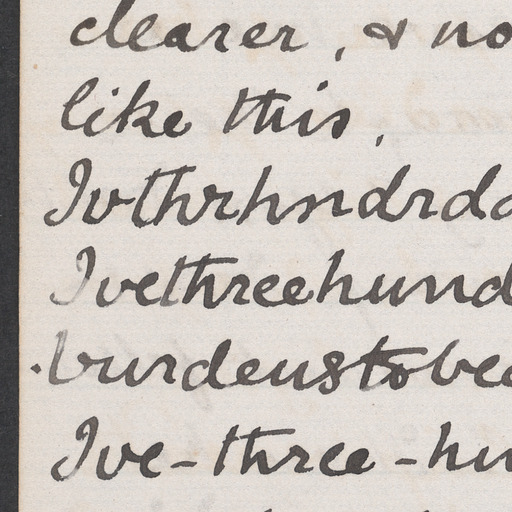 clearer, & no
like this,
Ivthrhndrdd
Ivethreehund
burdenstobea
Ive-three-hu